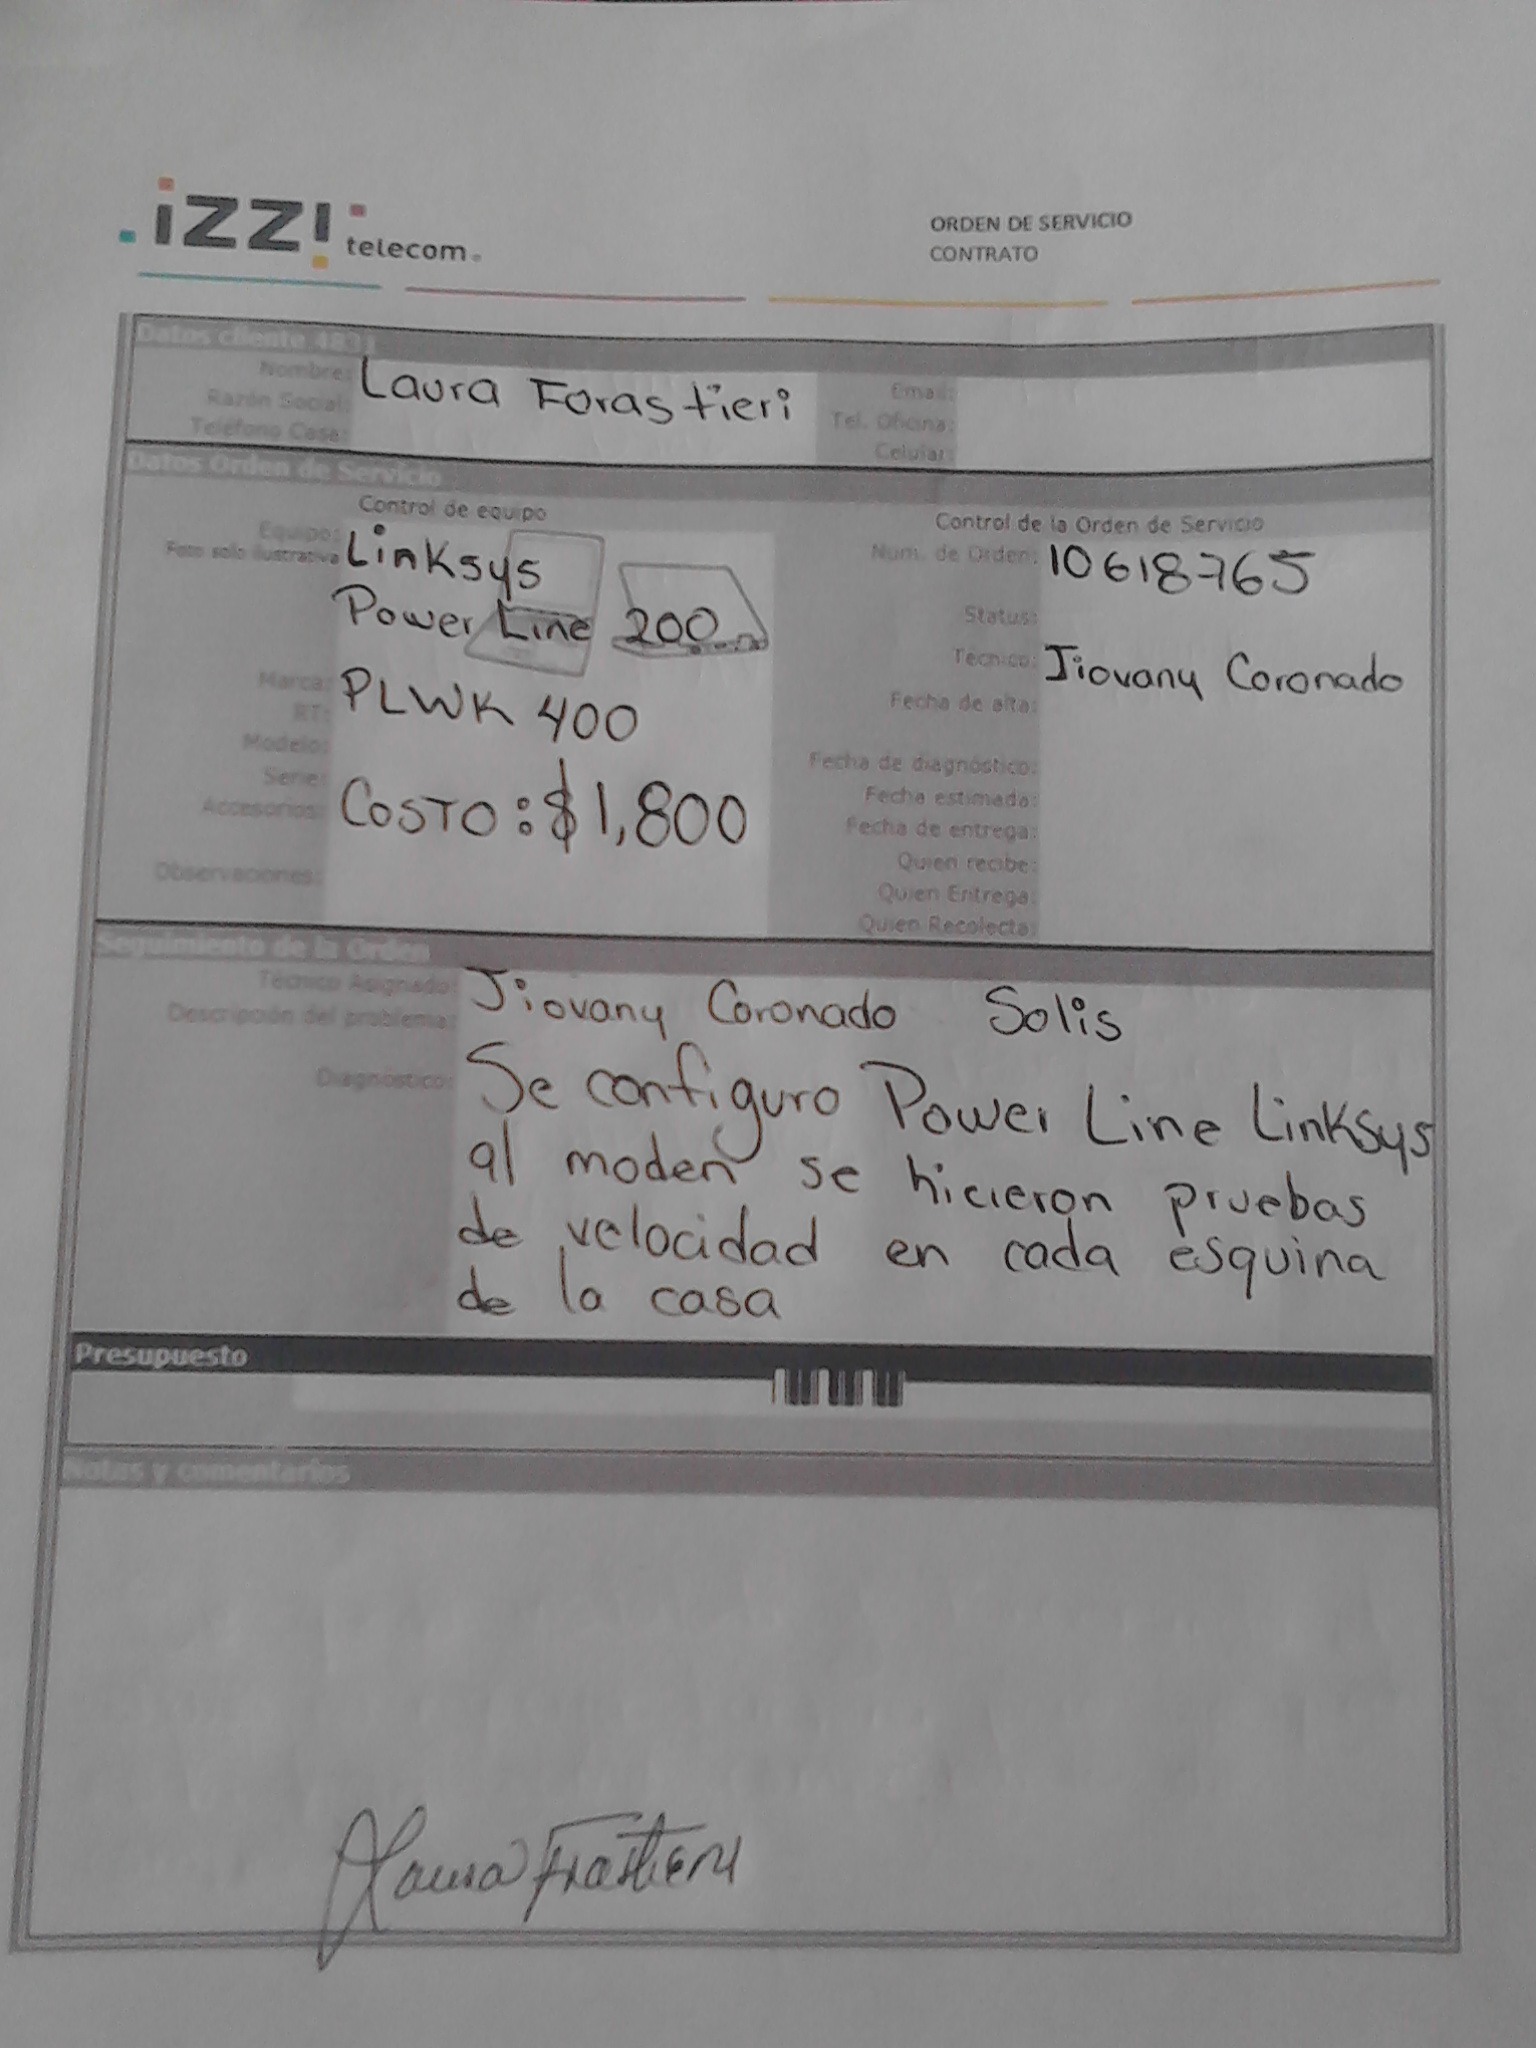 izzi telecom
ORDEN DE SERVICIO
CONTRATO
Datos cliente 4831
Nombre: Laura Forastieri
Razón Social:
Teléfono Casa:
Email:
Tel. Oficina:
Celular:
Datos Orden de Servicio
Control de equipo
Equipo: Linksys
Foto solo ilustrativa
Power Line 200
Marca: PLWK 400
RT:
Modelo:
Serie:
Accesorios: COSTO: $1,800
Observaciones:
Control de la Orden de Servicio
Num. de Orden: 10618765
Status:
Tecnico: Jiovany Coronado
Fecha de alta:
Fecha de diagnóstico:
Fecha estimada:
Fecha de entrega:
Quien recibe:
Quien Entrega:
Quien Recolecta:
Seguimiento de la Orden
Técnico Asignado: Jiovany Coronado Solis
Descripción del problema:
Diagnóstico: Se configuro Power Line Linksys
al moden se hicieron pruebas
de velocidad en cada esquina
de la casa
Presupuesto
Notas y comentarios
Laura Frastieri